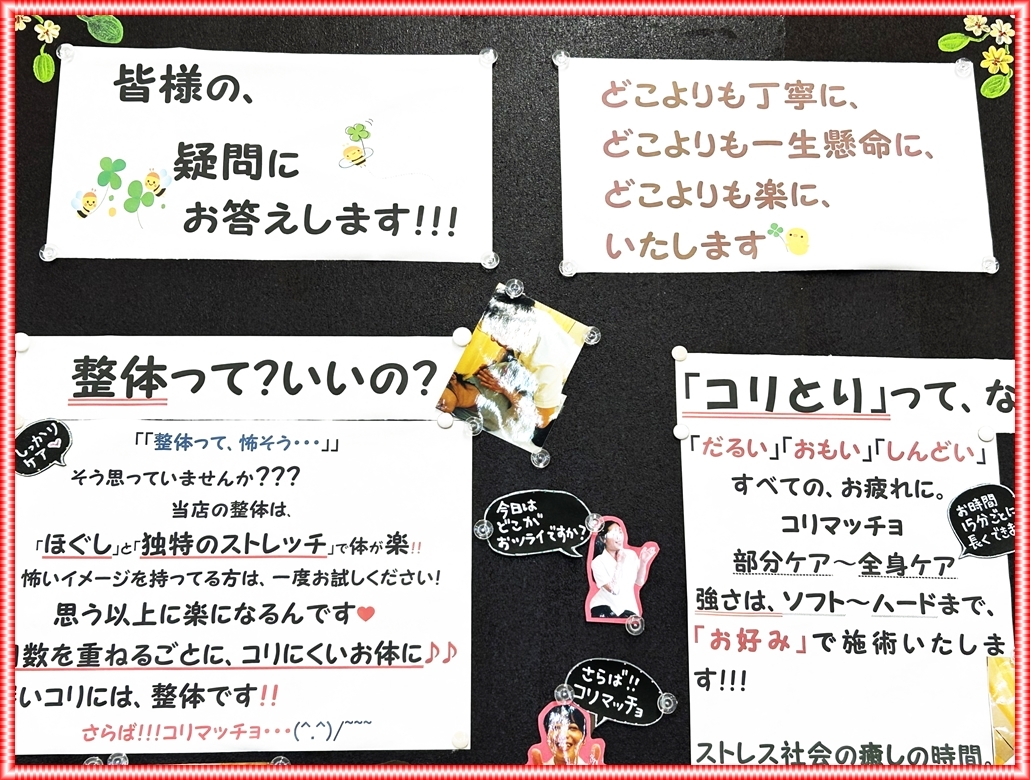 皆様の、
疑問に
お答えします!!!
どこよりも丁寧に、
どこよりも一生懸命に、
どこよりも楽に、
いたします
整体って?いいの?
しっかり
ケア
「「整体って、怖そう・・・」」
そう思っていませんか???
当店の整体は、
「ほぐし」と「独特のストレッチ」で体が楽!!
怖いイメージを持ってる方は、一度お試しください!
思う以上に楽になるんです♥
数を重ねるごとに、コリにくいお体に♪♪
いコリには、整体です!!
さらば!!!コリマッチョ・・・(^.^)/~~~
今日は
どこが
おツライですか?
さらば!!
コリマッチョ
「コリとり」って、な
「だるい」「おもい」「しんどい」
すべての、お疲れに。
コリマッチョ
部分ケア～全身ケア
お時間
15分ごとに
長くできま
強さは、ソフト～ハードまで、
「お好み」で施術いたしま
す!!!
ストレス社会の癒しの時間。